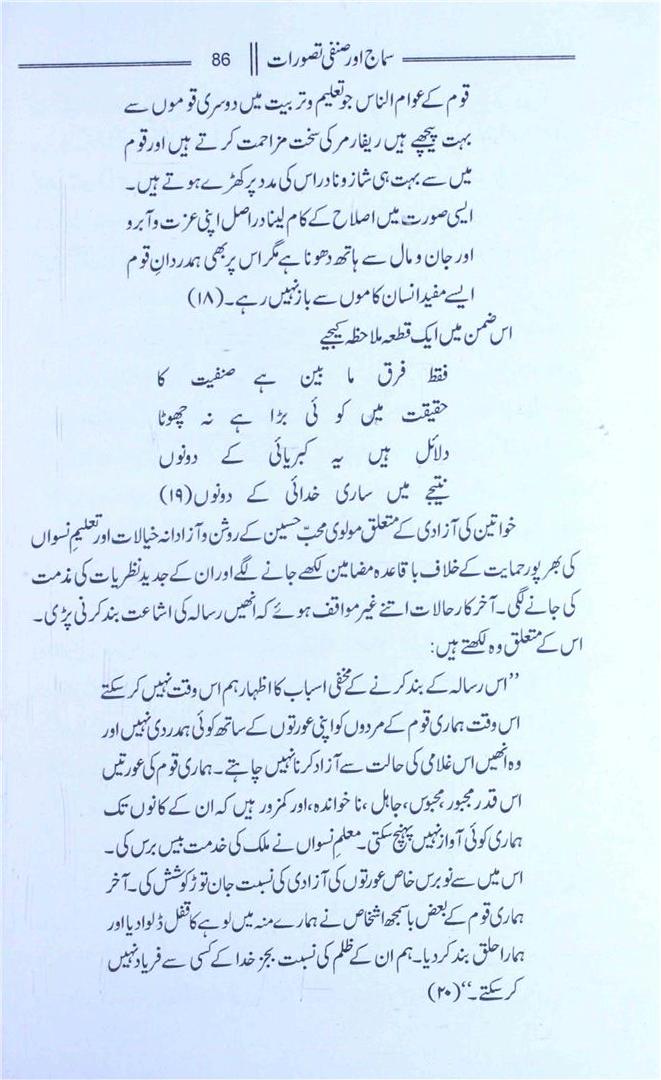 سماج اور صنفی تصورات || 86
قوم کے عوام الناس جو تعلیم و تربیت میں دوسری قوموں سے
بہت پیچھے ہیں ریفارمر کی سخت مزاحمت کرتے ہیں اور قوم
میں سے بہت ہی شاز و نادر اس کی مدد پر کھڑے ہوتے ہیں۔
ایسی صورت میں اصلاح کے کام لینا دراصل اپنی عزت و آبرو
اور جان و مال سے ہاتھ دھونا ہے مگر اس پر بھی ہمدردانِ قوم
ایسے مفید انسان کاموں سے باز نہیں رہے۔(۱۸)
اس ضمن میں ایک قطعہ ملاحظہ کیجیے
فقط فرق ما بین ہے صنفیت کا
حقیقت میں کوئی بڑا ہے نہ چھوٹا
دلائل ہیں یہ کبریائی کے دونوں
نتیجے میں ساری خدائی کے دونوں(۱۹)
خواتین کی آزادی کے متعلق مولوی محبّ حسین کے روشن و آزادانہ خیالات اور تعلیمِ نسواں
کی بھرپور حمایت کے خلاف باقاعدہ مضامین لکھے جانے لگے اور ان کے جدید نظریات کی مذمت
کی جانے لگی۔ آخر کار حالات اتنے غیر موافق ہوئے کہ انھیں رسالہ کی اشاعت بند کرنی پڑی۔
اس کے متعلق وہ لکھتے ہیں:
”اس رسالہ کے بند کرنے کے مخفی اسباب کا اظہار ہم اس وقت نہیں کر سکتے
اس وقت ہماری قوم کے مردوں کو اپنی عورتوں کے ساتھ کوئی ہمدردی نہیں اور
وہ انھیں اس غلامی کی حالت سے آزاد کرنا نہیں چاہتے۔ ہماری قوم کی عورتیں
اس قدر مجبور، محبوس، جاہل، نا خواندہ، اور کمزور ہیں کہ ان کے کانوں تک
ہماری کوئی آواز نہیں پہنچ سکتی۔ معلمِ نسواں نے ملک کی خدمت بیس برس کی۔
اس میں سے نو برس خاص عورتوں کی آزادی کی نسبت جان توڑ کوشش کی۔ آخر
ہماری قوم کے بعض باسمجھ اشخاص نے ہمارے منہ میں لوہے کا قفل ڈلوا دیا اور
ہمارا حلق بند کر دیا۔ ہم ان کے ظلم کی نسبت بجز خدا کے کسی سے فریاد نہیں
کر سکتے۔“(۲۰)